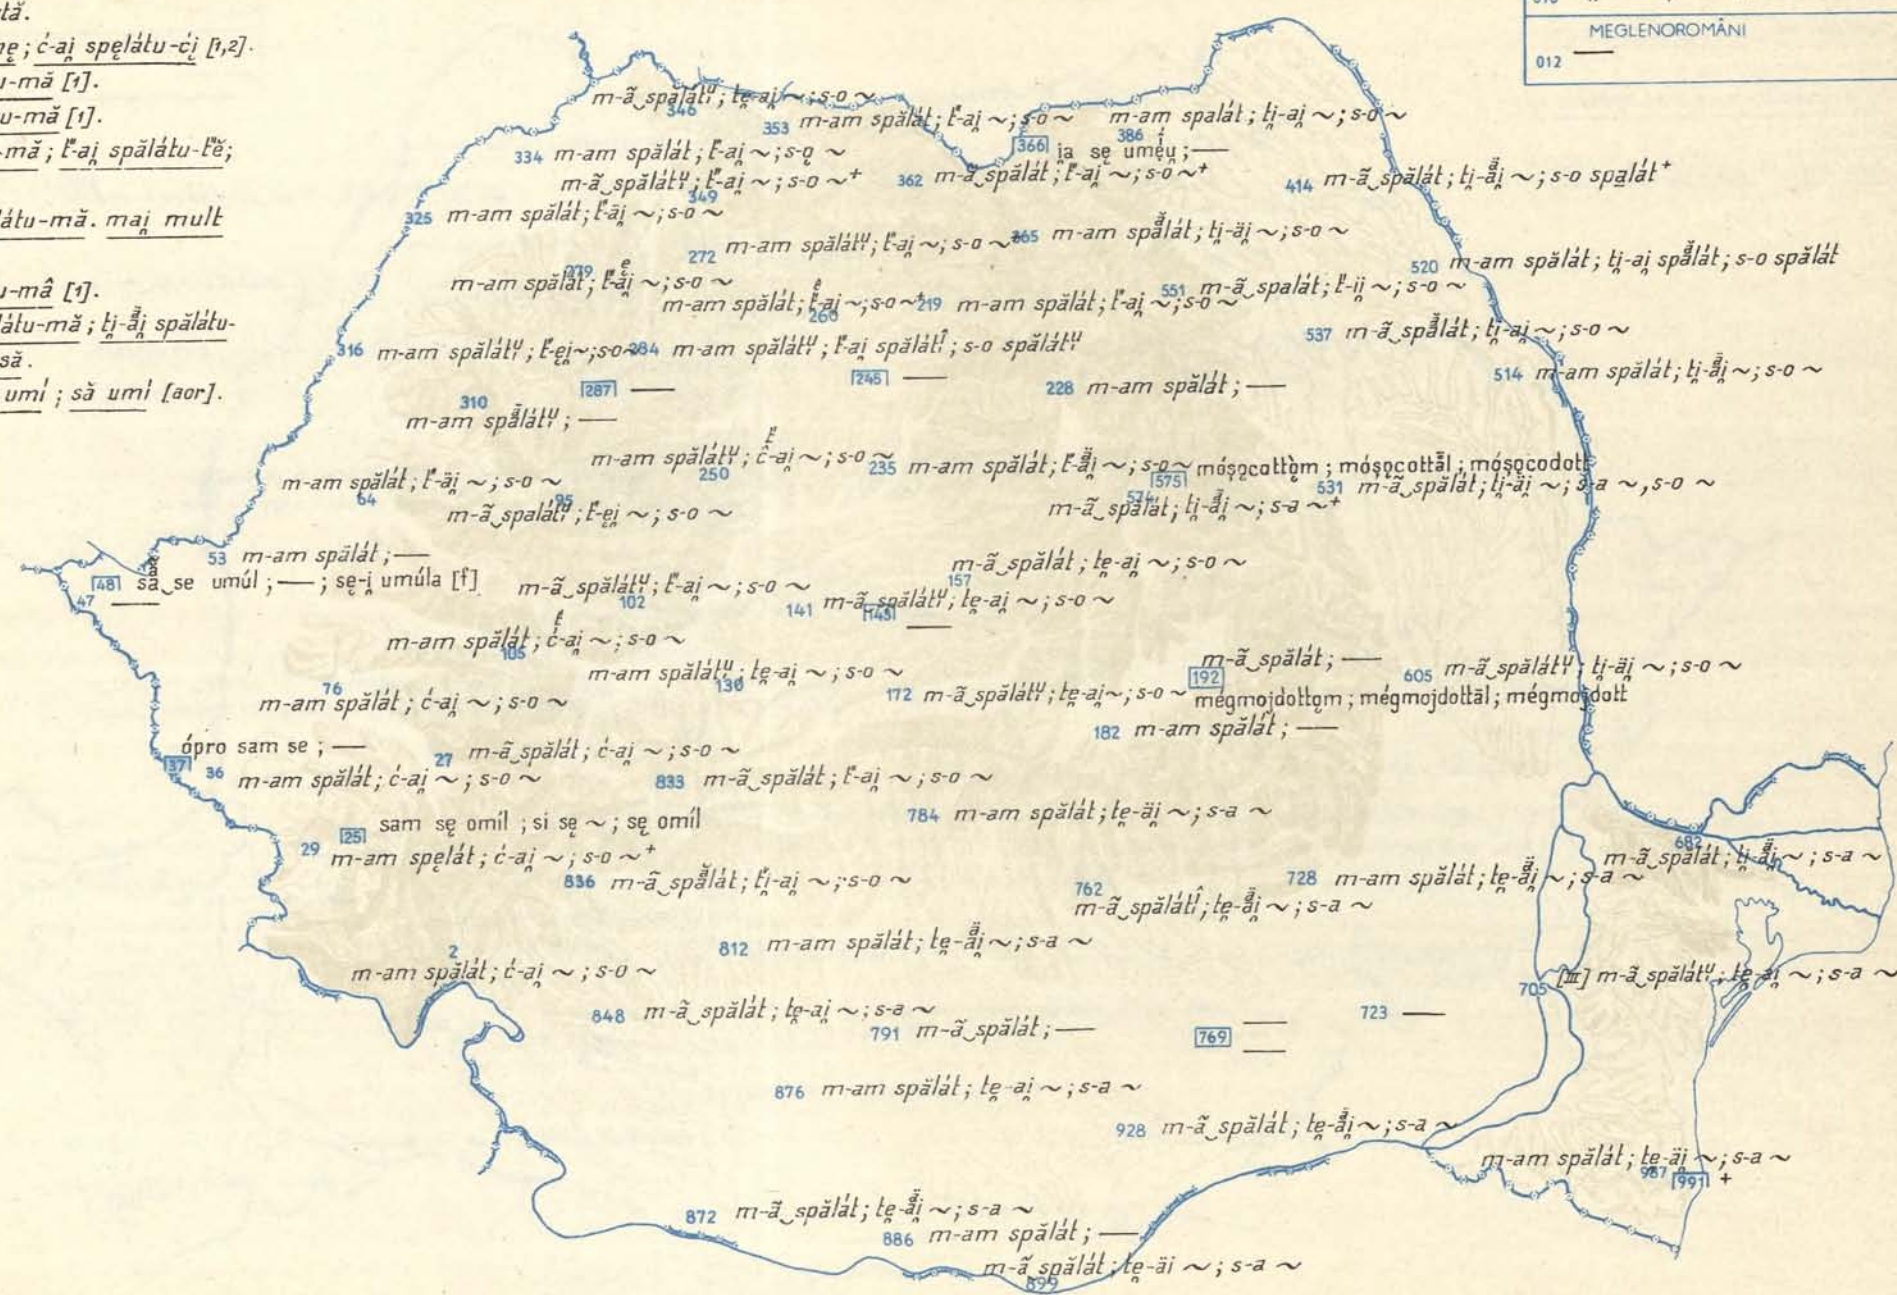 tă.
ne̯; ć-ai̯ spęlátu-ći̯ [1,2].
u-mă [1].
u-mă [1].
-mă; t́-ai̯ spălátu-t́ĕ;
látu-mă. mai̯ mult
u-mâ [1].
látu-mă; ți̯-ãi̯ spălátu-
să.
umí; să umí [aor].
MEGLENOROMÂNI
012 —
346 m-ã‿spălátᵘ; te̯-ai̯ ~; s-o ~
353 m-am spălát; t́-ai̯ ~; s-o ~
386 m-am spalát; ți̯-ai̯ ~; s-o ~
334 m-am spălát; t́-ai̯ ~; s-o̯ ~
366 i̯a sę uméu̯; —
349 m-ã‿spălátᵘ; t́-ai̯ ~; s-o ~⁺
362 m-ã‿spălát; t́-ai̯ ~; s-o ~⁺
414 m-ã‿spălát; ți̯-ãi̯ ~; s-o spalát⁺
325 m-am spălát; t́-äi̯ ~; s-o ~
272 m-am spălátᵘ; t́-ai̯ ~; s-o ~
365 m-am spălát; ți̯-äi̯ ~; s-o ~
520 m-am spălát; ți̯-ai̯ spălát; s-o spălát
279 m-am spălát; t́-äi̯ ~; s-o ~
260 m-am spălát; t́-ai̯ ~; s-o ~⁺
219 m-am spălát; t́-ai̯ ~; s-o ~
551 m-ã‿spalát; t́-ii̯ ~; s-o ~
537 m-ã‿spălát; ți̯-ai̯ ~; s-o ~
316 m-am spălátᵘ; t́-ęi̯ ~; s-o ~
284 m-am spălátᵘ; t́-ai spălátᶦ; s-o spălátᵘ
514 m-am spălát; ți̯-ãi̯ ~; s-o ~
287 —
245 —
228 m-am spălát; —
310 m-am spălátᵘ; —
250 m-am spălátᵘ; ĉ-ai̯ ~; s-o ~
235 m-am spălát; t́-ãi̯ ~; s-o ~
575 móșǫcottǫ̀m; móșǫcottăl; móșǫcodott
64 m-am spălát; t́-äi̯ ~; s-o ~
531 m-ã‿spălát; ți̯-äi̯ ~; s-a ~, s-o ~
95 m-ã‿spalátᵘ; t́-ęi̯ ~; s-o ~
574 m-ã‿spălát; ți̯-ãi̯ ~; s-a ~⁺
53 m-am spălát; —
157 m-ã‿spălát; te̯-ai̯ ~; s-o ~
48 să‿se umúl; —; sę-i̯ umúla [f]
47 —
102 m-ã‿spălátᵘ; t́-ai̯ ~; s-o ~
141 m-ã‿spălátᵘ; te̯-ai̯ ~; s-o ~
145 —
105 m-am spălát; ć-ai̯ ~; s-o ~
130 m-am spălátᵘ; te̯-ai̯ ~; s-o ~
192 m-ã‿spălát; —
605 m-ã‿spălátᵘ; ți̯-äi̯ ~; s-o ~
76 m-am spălát; ć-ai̯ ~; s-o ~
172 m-ã‿spălátᵘ; te̯-ai̯ ~; s-o ~
mégmojdottǫm; mégmojdottăl; mégmojdott
182 m-am spălát; —
37 ópro sam se; —
27 m-ã‿spălát; ć-ai̯ ~; s-o ~
36 m-am spălát; ć-ai̯ ~; s-o ~
833 m-ã‿spălát; t́-ai̯ ~; s-o ~
784 m-am spălát; te̯-äi̯ ~; s-a ~
25 sam sę omíl; si sę ~; sę omíl
29 m-am spęlát; ć-ai̯ ~; s-o ~⁺
682 m-ã‿spălát; ți̯-ãi̯ ~; s-a ~
836 m-ã‿spălát; t́i̯-ai̯ ~; s-o ~
728 m-am spălát; te̯-ãi̯ ~; s-a ~
762 m-ã‿spălátᶦ; te̯-ãi̯ ~; s-a ~
812 m-am spălát; te̯-ãi̯ ~; s-a ~
2 m-am spălát; ć-ai̯ ~; s-o ~
705 [III] m-ã‿spălátᵘ; te̯-ai̯ ~; s-a ~
848 m-ã‿spălát; te̯-ai̯ ~; s-a ~
791 m-ã‿spălát; —
769 —
—
723 —
876 m-am spălát; te̯-ai̯ ~; s-a ~
928 m-ã‿spălát; te̯-ãi̯ ~; s-a ~
987 m-am spălát; te̯-äi̯ ~; s-a ~
991 +
872 m-ã‿spălát; te̯-ãi̯ ~; s-a ~
886 m-am spălát; —
899 m-ã‿spălát; te̯-äi ~; s-a ~